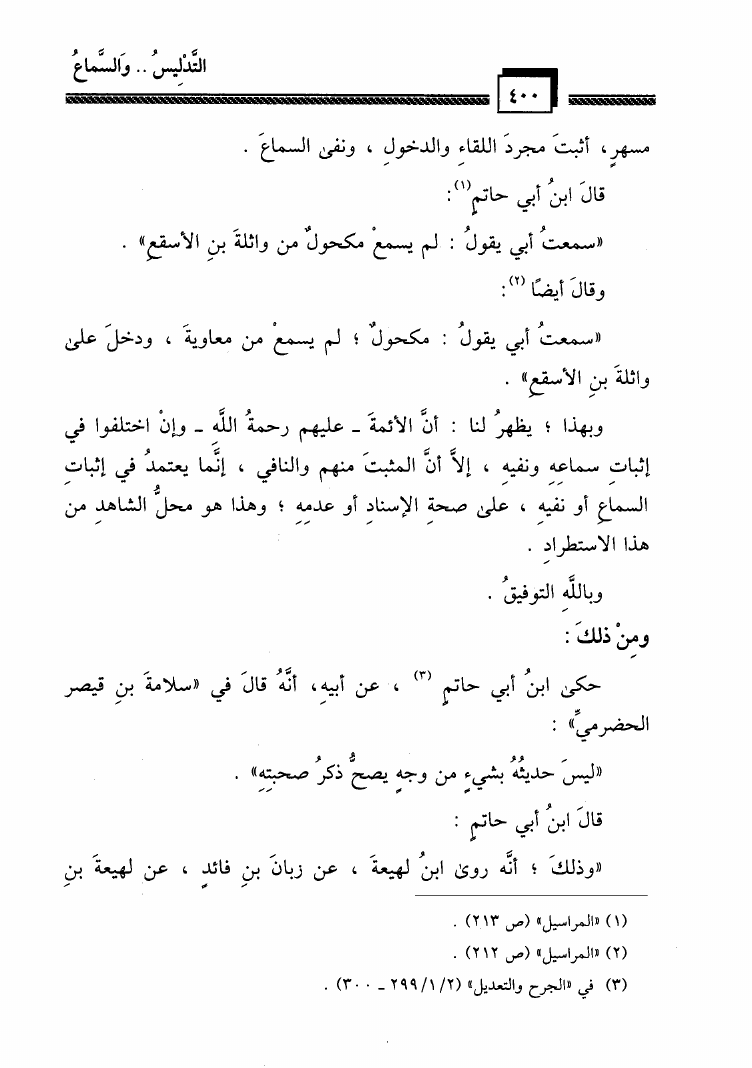 التَّدْلِيسُ .. وَالسَّمَاعُ
٤٠٠
مسهرٍ، أثبتَ مجردَ اللقاءِ والدخولِ ، ونفى السماعَ .
قالَ ابنُ أبي حاتمٍ(١):
«سمعتُ أبي يقولُ : لم يسمعْ مكحولٌ من واثلةَ بنِ الأسقعِ» .
وقالَ أيضًا (٢):
«سمعتُ أبي يقولُ : مكحولٌ ؛ لم يسمعْ من معاويةَ ، ودخلَ على
واثلةَ بنِ الأسقعِ» .
وبهذا ؛ يظهرُ لنا : أنَّ الأئمةَ ـ عليهم رحمةُ اللَّهِ ـ وإنْ اختلفوا في
إثباتِ سماعِهِ ونفيهِ ، إلاَّ أنَّ المثبتَ منهم والنافي ، إنَّما يعتمدُ في إثباتِ
السماعِ أو نفيهِ ، على صحةِ الإسنادِ أو عدمِهِ ؛ وهذا هو محلُّ الشاهدِ من
هذا الاستطرادِ .
وباللَّهِ التوفيقُ .
ومِنْ ذلكَ :
حكى ابنُ أبي حاتمٍ (٣) ، عن أبيهِ، أنَّهُ قالَ في «سلامةَ بنِ قيصر
الحضرميِّ» :
«ليسَ حديثُهُ بشيءٍ من وجهٍ يصحُّ ذكرُ صحبتِهِ» .
قالَ ابنُ أبي حاتمٍ :
«وذلكَ ؛ أنَّه روى ابنُ لهيعةَ ، عن زبانَ بنِ فائدٍ ، عن لهيعةَ بنِ
(١) «المراسيل» (ص ٢١٣) .
(٢) «المراسيل» (ص ٢١٢) .
(٣) في «الجرح والتعديل» (٢/ ١/ ٢٩٩ ـ ٣٠٠) .